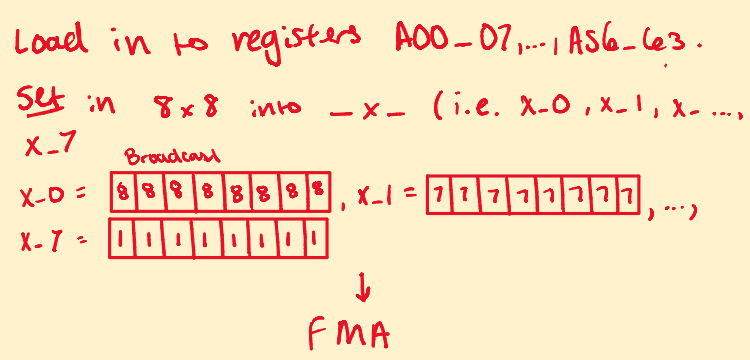 Load in to registers A00_07,...,A56_63.
Set in 8x8 into _x_ (i.e. x_0, x_1, x_ ...,
x_7
Broadcast
x_0 = 8 8 8 8 8 8 8 8, x_1 = 7 7 7 7 7 7 7 7, ...,
x_7 = 1 1 1 1 1 1 1 1
↓
FMA